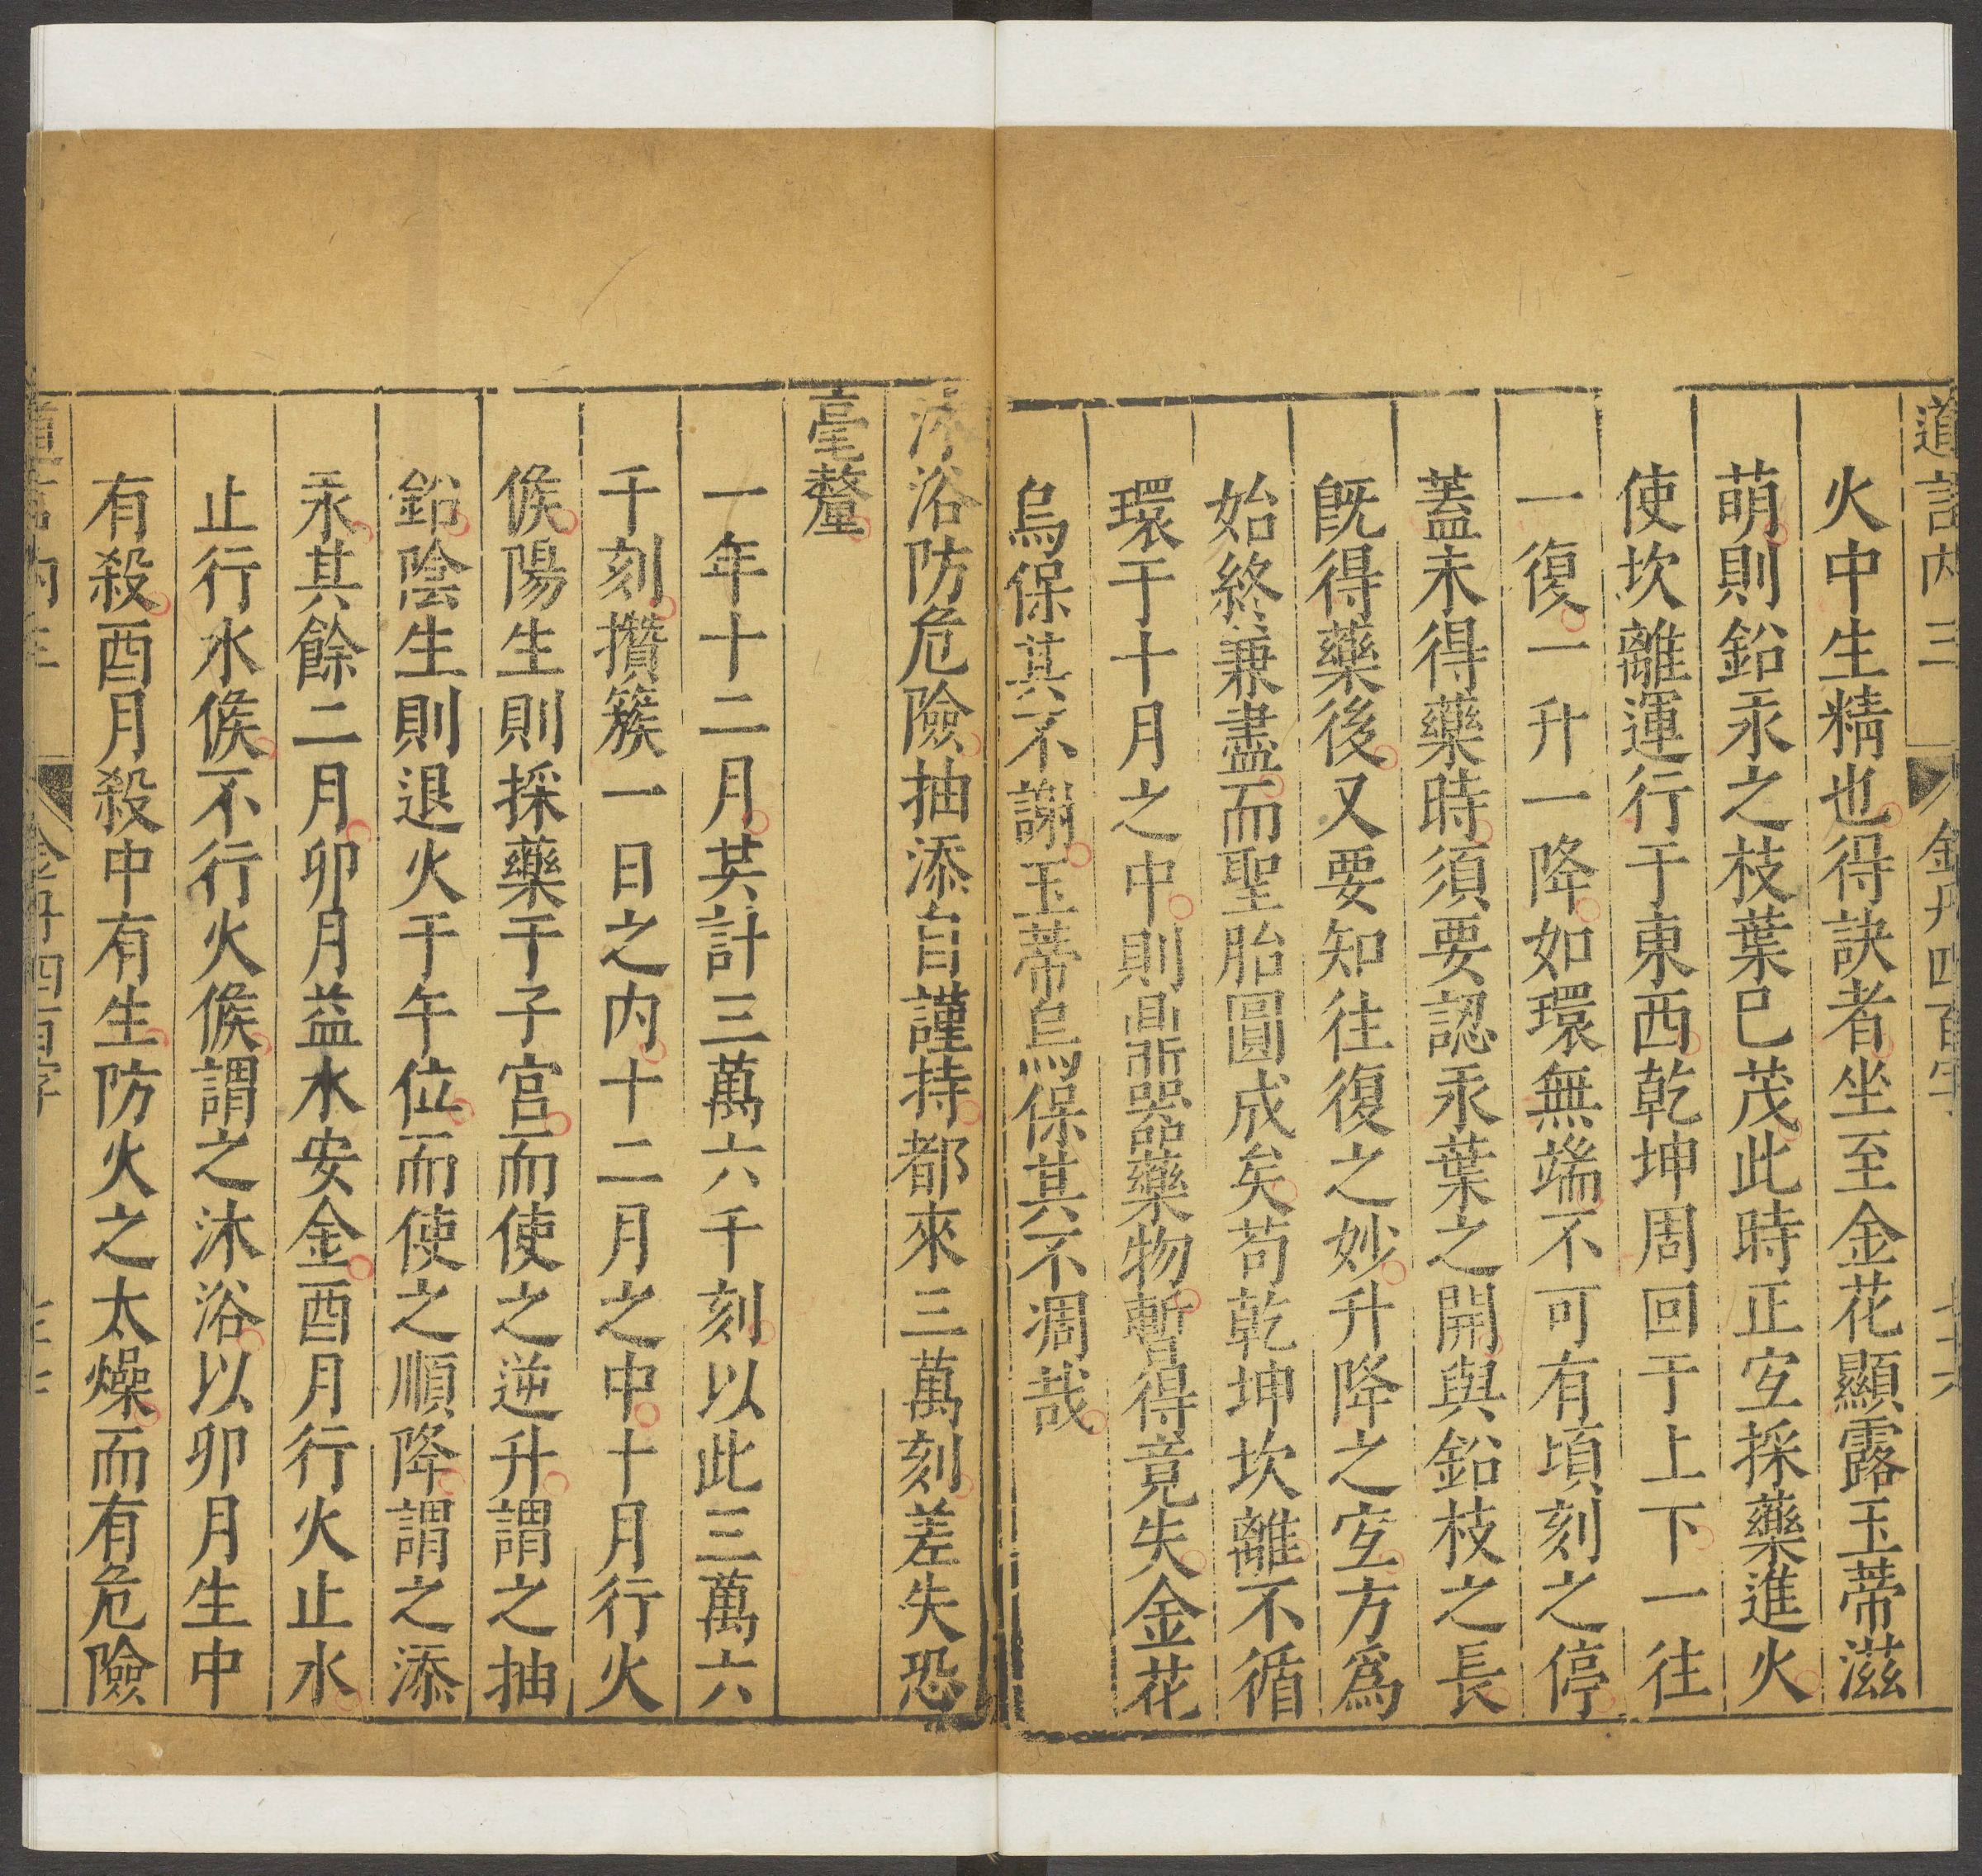 道言内三 金丹四百字
火中生精也得訣者坐至金花顯露玉蒂滋
萌則鉛汞之枝葉已茂此時正宜採藥進火
使坎離運行于東西乾坤周回于上下一往
一復一升一降如環無端不可有頃刻之停
蓋未得藥時須要認汞葉之開與鉛枝之長
既得藥後又要知往復之妙升降之宜方爲
始終兼盡而聖胎圓成矣苟乾坤坎離不循
環于十月之中則鼎器藥物暫得竟失金花
烏保其不謝玉蒂烏保其不凋哉
沐浴防危險抽添自謹持都來三萬刻差失恐
毫釐
一年十二月共計三萬六千刻以此三萬六
千刻攢簇一日之内十二月之中十月行火
候陽生則採藥于子宫而使之逆升謂之抽
鉛陰生則退火于午位而使之順降謂之添
汞其餘二月卯月益水安金酉月行火止水
止行水候不行火候謂之沐浴以卯月生中
有殺酉月殺中有生防火之太燥而有危險
金丹四百字